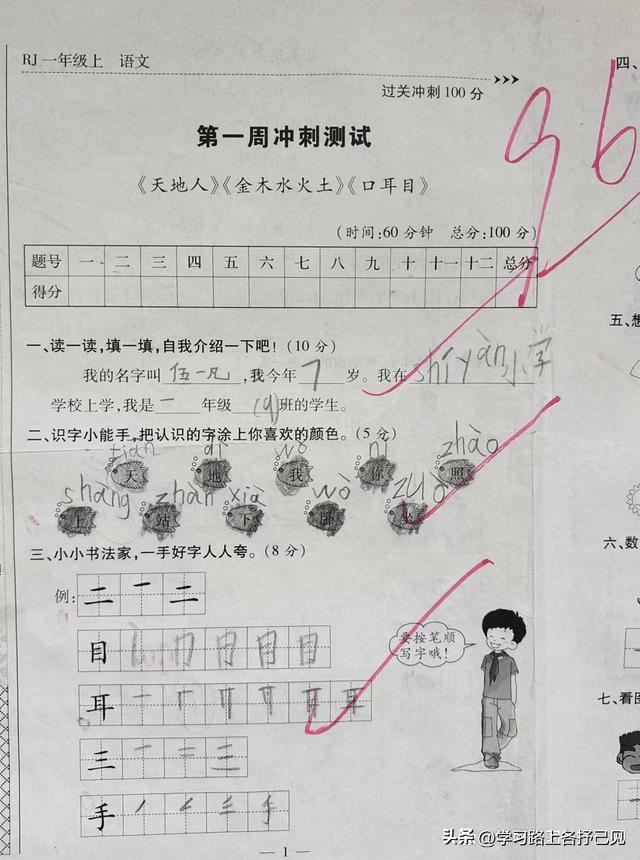 RJ 一年级上 语文
过关冲刺100分
96
第一周冲刺测试
《天地人》《金木水火土》《口耳目》
(时间:60分钟 总分:100分)
题号 一 二 三 四 五 六 七 八 九 十 十一 十二 总分
得分
一、读一读,填一填,自我介绍一下吧! (10分)
我的名字叫 伍一凡 ,我今年 7 岁。我在 shíyàn小学
学校上学,我是 一 年级 班的学生。
二、识字小能手,把认识的字涂上你喜欢的颜色。(5分)
tiān dì wǒ nǐ zhào
天 地 我 你 照
shang zhàn xià wò zuò
上 站 下 卧 坐
三、小小书法家,一手好字人人夸。(8分)
例: 二 一 二
目
耳
三
手
要按笔顺
写字哦!
— 1 —
四、
五、想
六、数
七、看图
头条 @学习路上各抒己见